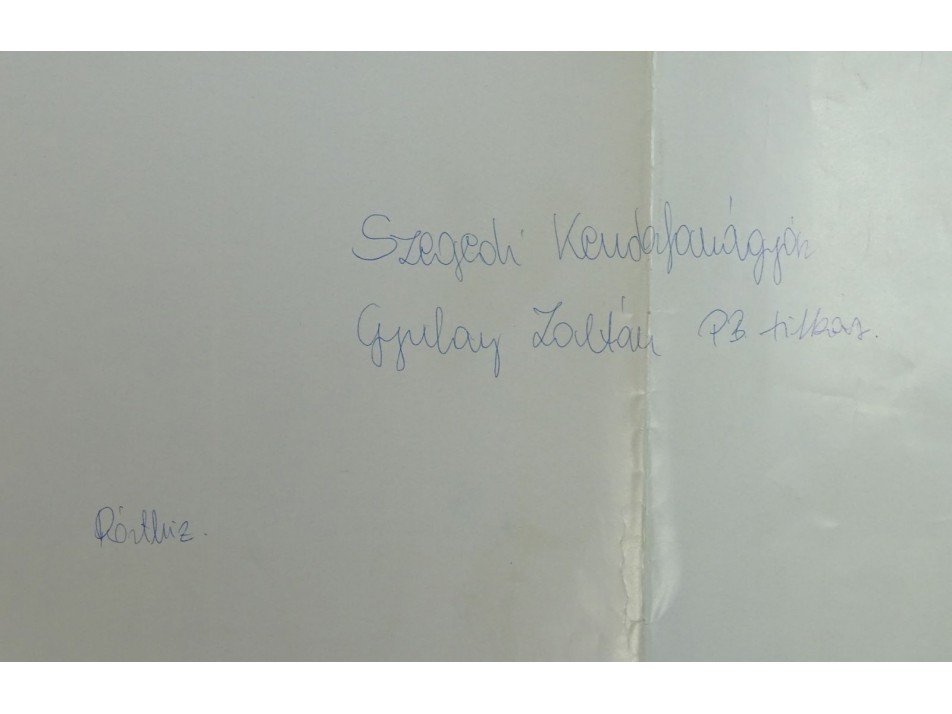 Szegedi Kenderfonógyár
Gyulay Zoltán PB titkár.
Pártbiz.